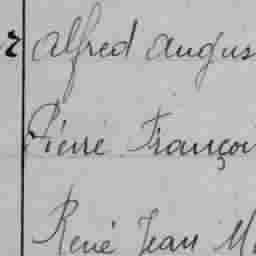 2 Alfred Augus
Pierre Françoi
René Jean M